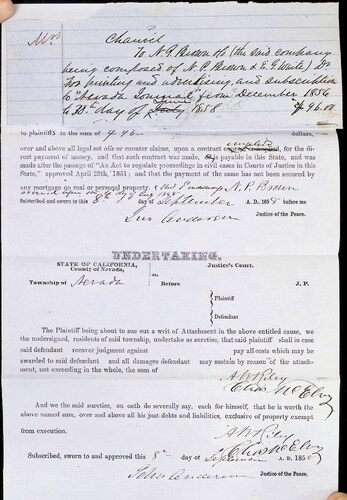 Mr. Chauvel
To N. P. Brown & Co (the said company
being composed of N. P. Brown & E. G. Waite) Dr
For printing and advertising, and subscription
to "Nevada Journal" from December 1856
to 30th day of June 1858 $96.00
to plaintiffs in the sum of $96— dollars,
over and above all legal set offs or counter claims, upon a contract implied for the di-
rect payment of money, and that such contract was made, & is payable in this State, and
was made after the passage of "An Act to regulate proceedings in civil cases in Courts of Justice in this
State," approved April 29th, 1851; and that the payment of the same has not been secured by
any mortgage on real or personal property. N. P. Brown
Subscribed and sworn to this 8th day of September A. D. 1858 before me
Jno Anderson Justice of the Peace.
UNDERTAKING.
STATE OF CALIFORNIA, Justice's Court.
County of Nevada,
Township of Nevada Before J. P.
Plaintiff
Defendant
The Plaintiff being about to sue out a writ of Attachment in the above entitled cause, we
the undersigned, residents of said township, undertake as sureties, that said plaintiff shall in case
said defendant recover judgment against pay all costs which may be
awarded to said defendant and all damages defendant may sustain by reason of the attach-
ment, not exceeding in the whole, the sum of
A W Riley
Chas McElvy
And we the said sureties, on oath do severally say, each for himself, that he is worth the
above named sum, over and above all his just debts and liabilities, exclusive of property exempt
from execution.
A W Riley
Chas McElvy
Subscribed, sworn to and approved this 8th day of September A. D. 1858
John Anderson Justice of the Peace.